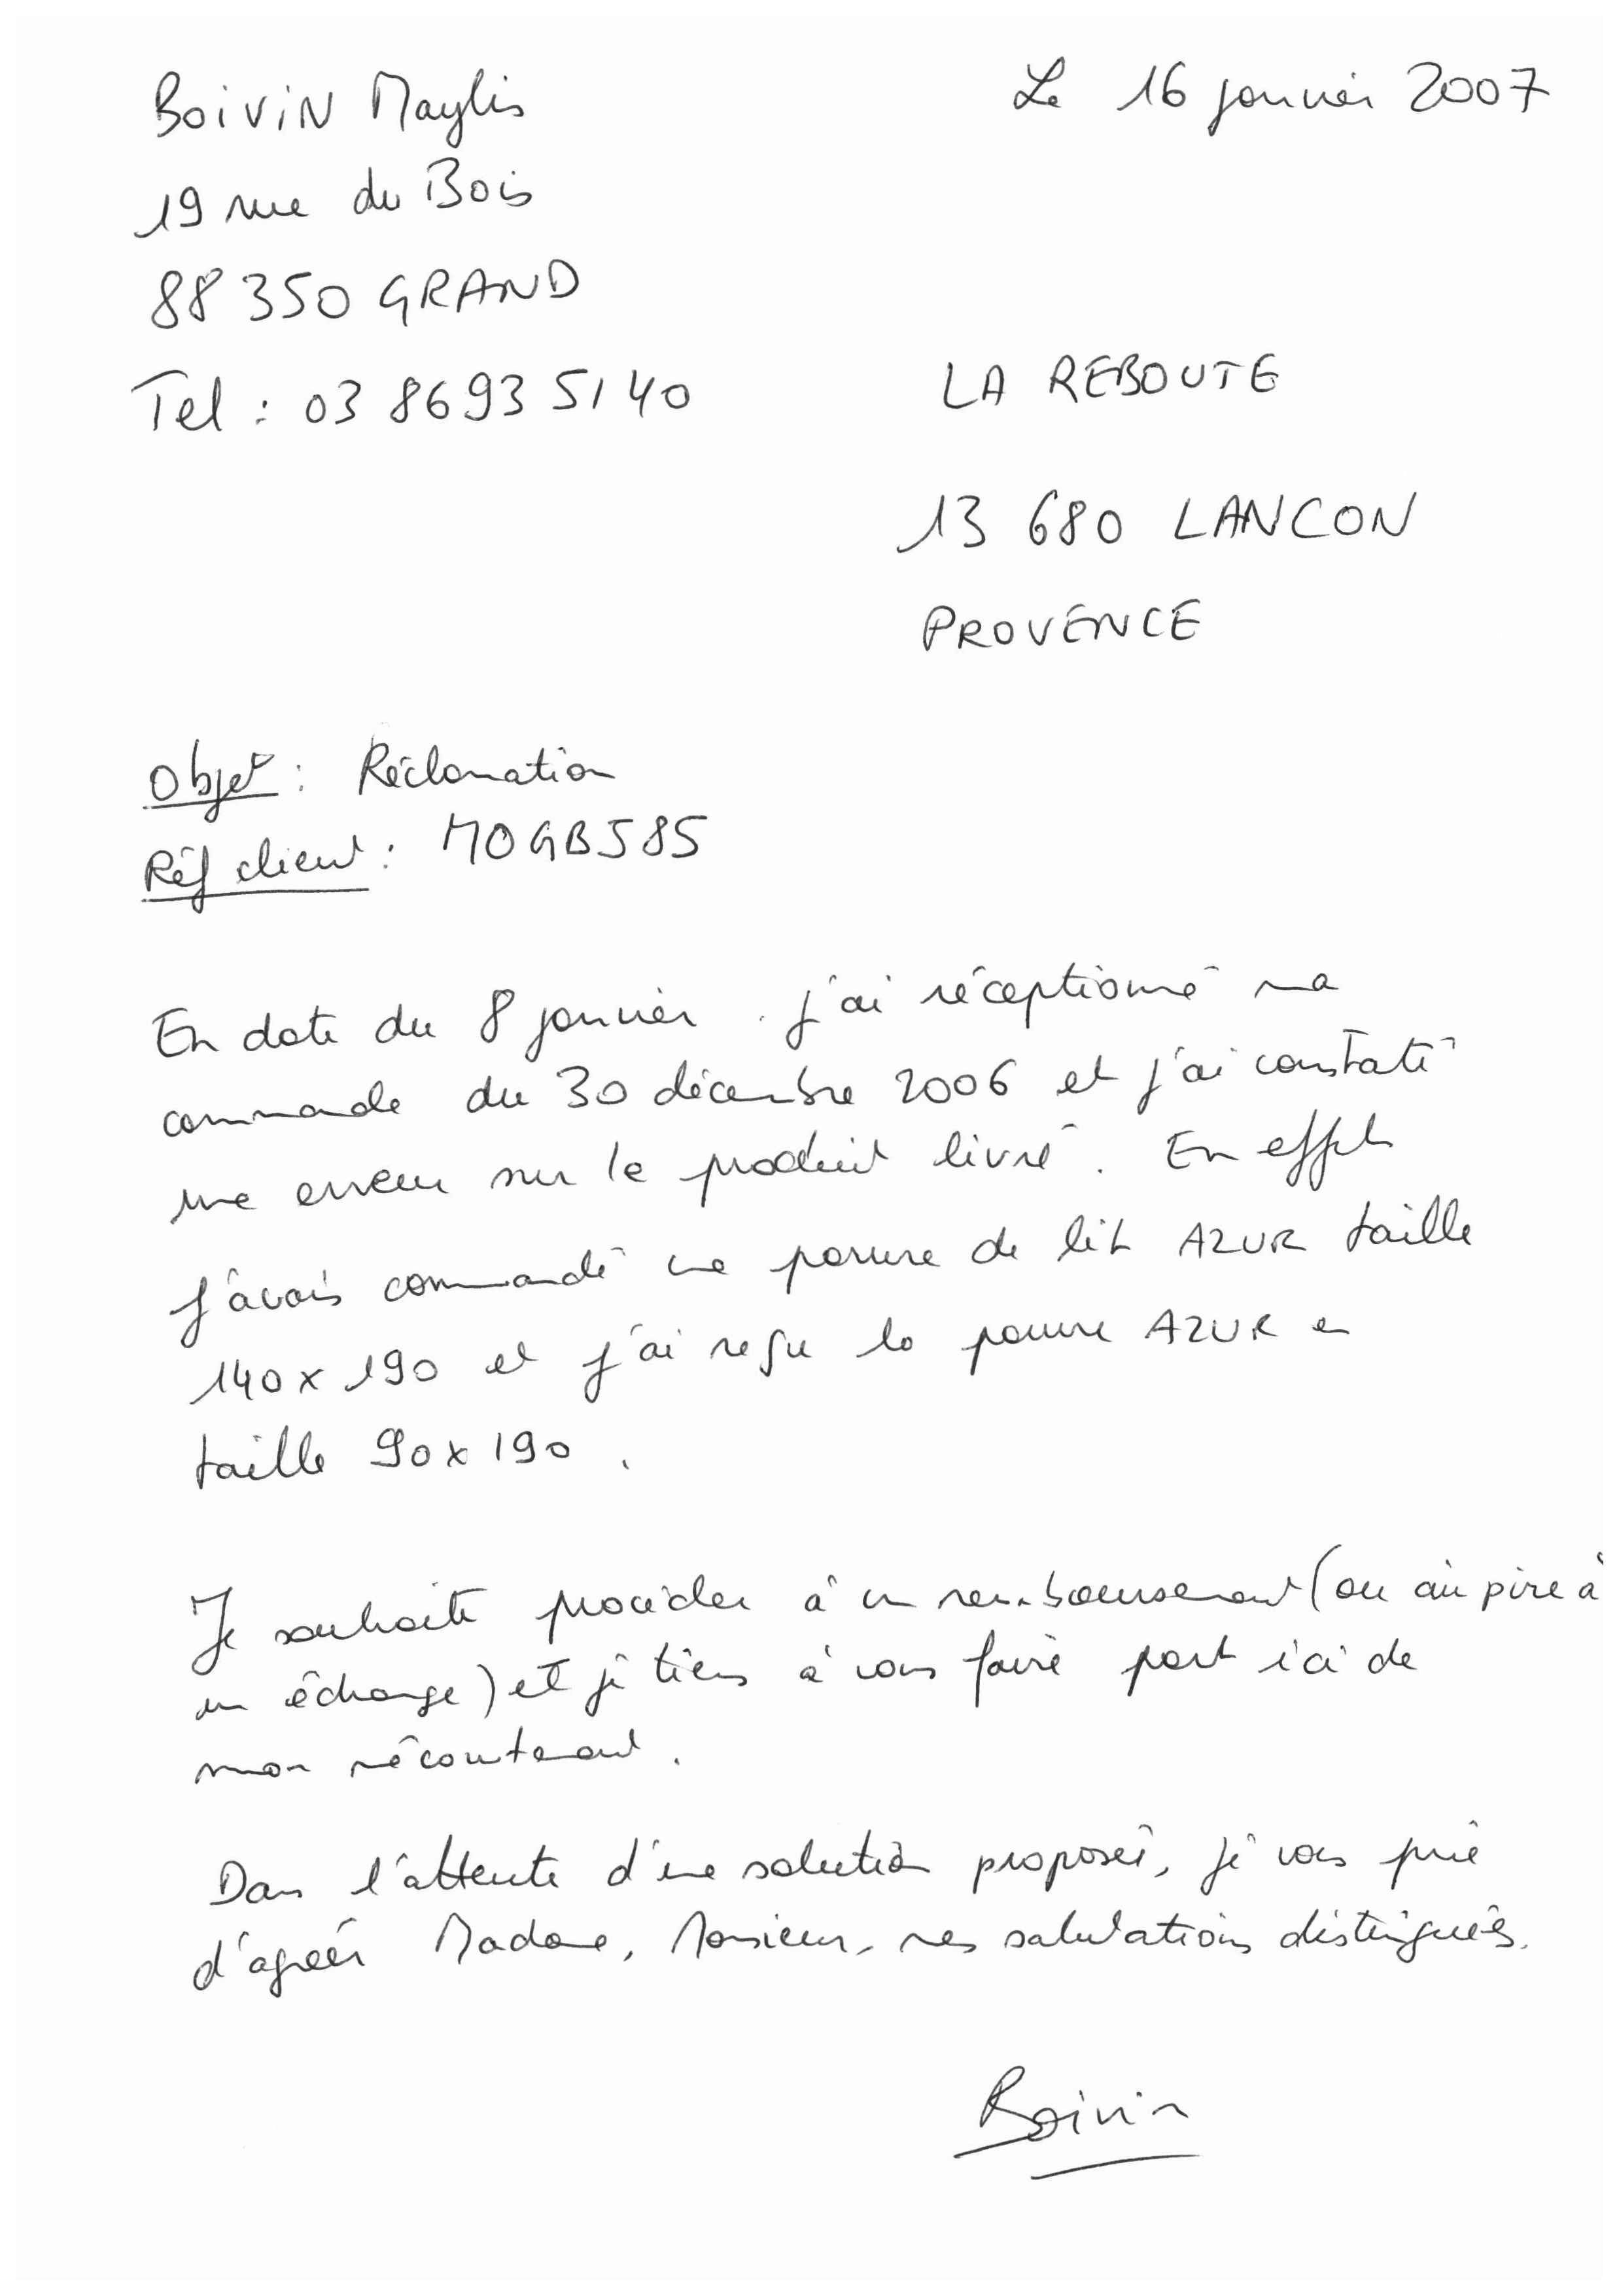 Boivin Maylis
Le 16 janvier 2007
19 rue du Bois
88 350 GRAND
Tel : 03 86 93 51 40
LA REBOUTE
13 680 LANCON
PROVENCE
Objet : Réclamation
Réf client : MOGBJ85
En date du 8 janvier . j'ai réceptionné ma
commande du 30 décembre 2006 et j'ai constaté
une erreur sur le produit livré. En effet
j'avais commandé une parure de lit AZUR taille
140 x 190 et j'ai reçu la parure AZUR en
taille 90 x 190 .
Je souhaite procéder à un remboursement (ou au pire à
un échange) et je tiens à vous faire part ici de
mon mécontement .
Dans l'attente d'une solution proposée, je vous prie
d'agréer Madame, Monsieur, mes salutations distinguées.
Boivin